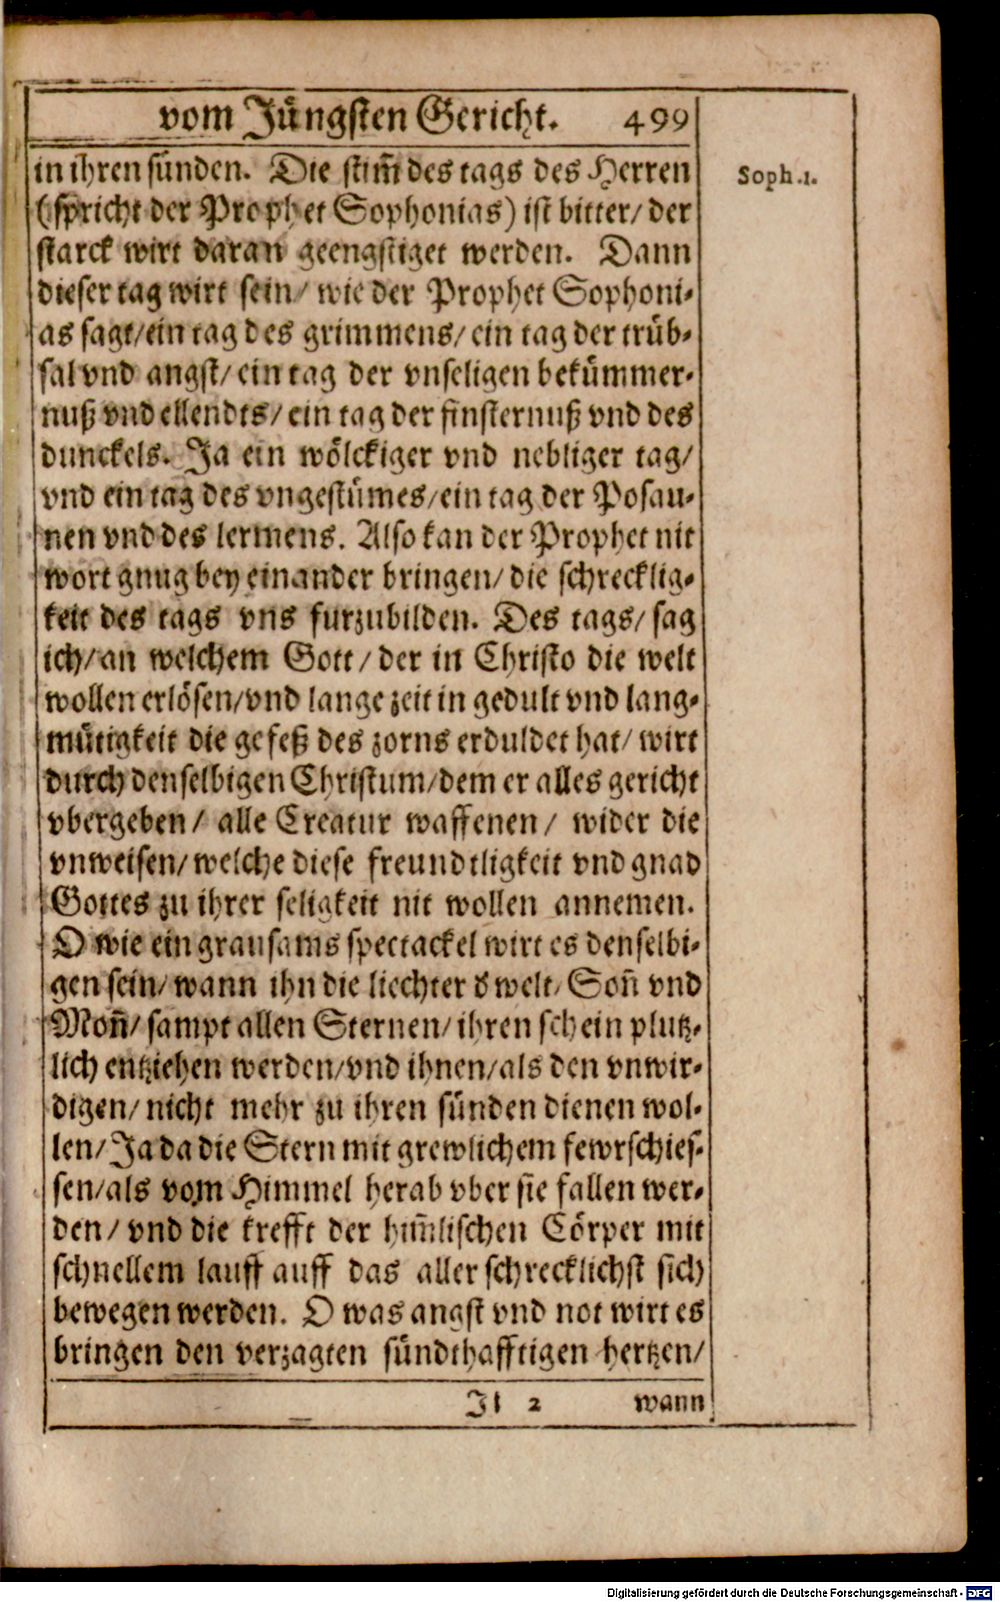 vom Jüngsten Gericht. 499
in ihren sünden. Die stim̃ des tags des Herren
Soph.1.
(spricht der Prophet Sophonias) ist bitter/ der
starck wirt daran geengstiget werden. Dann
dieser tag wirt sein/ wie der Prophet Sophoni-
as sagt/ ein tag des grimmens/ ein tag der trüb-
sal vnd angst/ ein tag der vnseligen bekümmer-
nuß vnd ellendts/ ein tag der finsternuß vnd des
dunckels. Ja ein wölckiger vnd nebliger tag/
vnd ein tag des vngestümes/ ein tag der Posau-
nen vnd des lermens. Also kan der Prophet nit
wort gnug bey einander bringen/ die schrecklig-
keit des tags vns furzubilden. Des tags/ sag
ich/ an welchem Gott/ der in Christo die welt
wollen erlösen/ vnd lange zeit in gedult vnd lang-
mütigkeit die gefeß des zorns erduldet hat/ wirt
durch denselbigen Christum/ dem er alles gericht
vbergeben/ alle Creatur waffenen/ wider die
vnweisen/ welche diese freundtligkeit vnd gnad
Gottes zu ihrer seligkeit nit wollen annemen.
O wie ein grausams spectackel wirt es denselbi-
gen sein/ wann ihn die liechter d welt/ Soñ vnd
Moñ/ sampt allen Sternen/ ihren schein plutz-
lich entziehen werden/ vnd ihnen/ als den vnwir-
digen/ nicht mehr zu ihren sünden dienen wol-
len/ Ja da die Stern mit grewlichem fewrschies-
sen/ als vom Himmel herab vber sie fallen wer-
den/ vnd die krefft der him̃lischen Cörper mit
schnellem lauff auff das aller schrecklichst sich
bewegen werden. O was angst vnd not wirt es
bringen den verzagten sündthafftigen hertzen/
It 2 wann
Digitalisierung gefördert durch die Deutsche Forschungsgemeinschaft - DFG